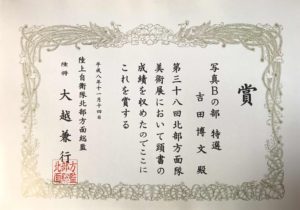 賞
写真Bの部 特選
吉田博文 殿
第三十八回北部方面隊
美術展において頭書の
成績を収めたのでここに
これを賞する
平成八年十一月十四日
陸上自衛隊北部方面総監
陸将 大越兼行